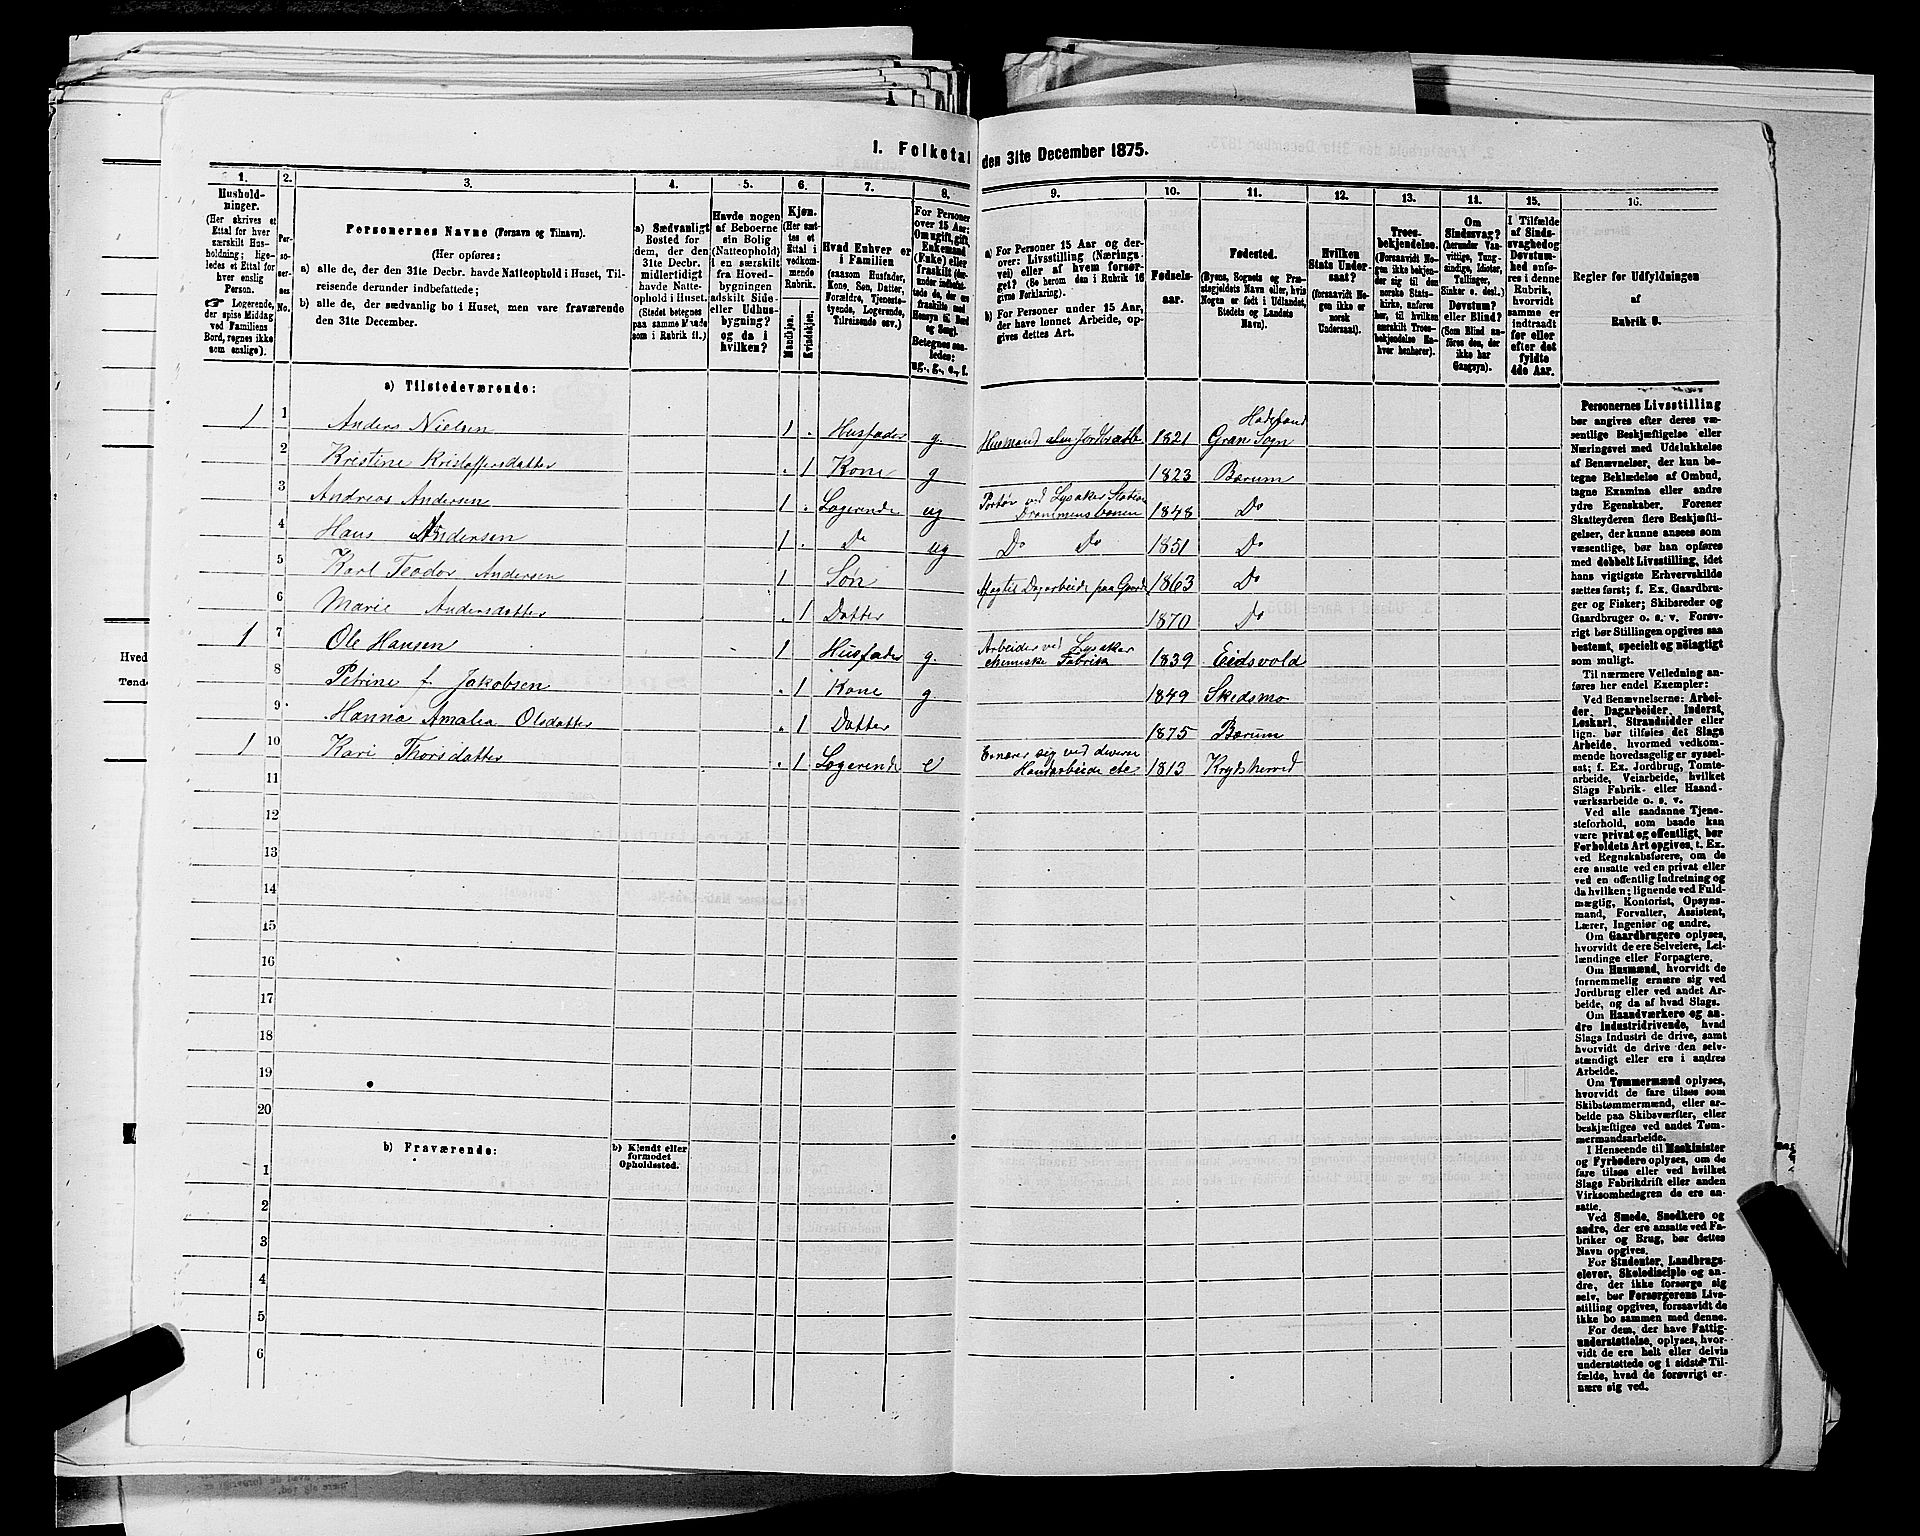 1. Folketal den 31te December 1875.
1. 2. 3. 4. 5. 6. 7. 8. 9. 10. 11. 12. 13. 14. 15. 16.
Hushold-
ninger.
(Her skrives et
Ettal for hver
særskilt Hus-
holdning; lige-
ledes et Ettal for
hver enslig
Person.
☞ Logerende,
der spise Middag
ved Familiens
Bord, regnes ikke
som enslige).
Per-
so-
ner-
nes
No.
Personernes Navne (Fornavn og Tilnavn).
(Her opføres:
a) alle de, der den 31te Decbr. havde Natteophold i Huset, Til-
reisende derunder indbefattede;
b) alle de, der sædvanlig bo i Huset, men vare fraværende
den 31te December.
a) Sædvanligt
Bosted for
dem, der den
31te Decbr.
midlertidigt
havde Natte-
ophold i Huset.
(Stedet betegnes
paa samme Maade
som i Rubrik 11.)
Havde nogen
af Beboerne
sin Bolig
(Natteophold)
i en særskilt
fra Hoved-
bygningen
adskilt Side-
eller Udhus-
bygning?
og da i
hvilken?
Kjøn.
(Her sæt-
tes et
Ettal i
vedkom-
mende
Rubrik.
Mandkjøn.
Kvindekjøn.
Hvad Enhver er
i Familien
(saasom Husfader,
Kone, Søn, Datter,
Forældre, Tjeneste-
tyende, Logerende,
Tilreisende osv.)
For Personer
over 15 Aar:
Om ugift, gift,
Enkemand
(Enke) eller
fraskilt
Betegnes saa-
ledes:
ug., g., e., f.
a) For Personer 15 Aar og der-
over: Livsstilling (Nærings-
vei) eller af hvem forsør-
get? (Se herom den i Rubrik 16
givne Forklaring).
b) For Personer under 15 Aar,
der have lønnet Arbeide, op-
gives dettes Art.
Fødsels-
aar.
Fødested.
(Byens, Sognets og Præ-
stegjeldets Navn eller, hvis
Nogen er født i Udlandet,
Stedets og Landets
Navn).
Hvilken
Stats Under-
saat?
(forsaavidt No-
gen ikke er
norsk
Undersaat).
Troes-
bekjendelse.
(Forsaavidt No-
gen ikke bekjen-
der sig til den
norske Stats-
kirke, anføres
her, til hvilken
særskilt Troes-
bekjendelse En-
hver henhører).
Om
Sindssvag?
(herunder Van-
vittige, Tung-
sindige, Idioter,
Tullinger,
Sinker o. desl.)
Døvstum?
eller Blind?
(Som Blind an-
føres den, der
ikke har
Gangsyn).
I Tilfælde
af Sinds-
svaghed og
Døvstum-
hed anfø-
res i denne
Rubrik,
hvorvidt
samme er
indtraadt
før eller
efter det
fyldte
4de Aar.
Regler for Udfyldningen
af
Rubrik 9.
a) Tilstedeværende:
1 1 Anders Nielsen 1 . Husfader g. Husmand uden Jordbrug 1821 Gran Sogn Hadeland
2 Kristine Kristoffersdatter . 1 Kone g 1823 Bærum
3 Andreas Andersen 1 . Logerende ug Portør ved Lysaker Station Drammensbanen 1848 Do
4 Hans Andersen 1 . Do ug Do Do 1851 Do
5 Karl Teodor Andersen 1 Søn Dagarbeide paa 1863 Do
6 Marie Andersdatter . 1 Datter 1870 Do
1 7 Ole Hansen 1 Husfader g. Arbeider ved Lysaker chemiske Fabrik 1839 Eidsvold
8 Petrine f. Jakobsen . 1 Kone g 1849 Skedsmo
9 Hanna Amalia Olsdatter . 1 Datter 1875 Bærum
1 10 Kari Thorsdatter . 1 Logerende e Ernærer sig ved diverse Haandarbeide etc 1813 Krydsherred
11
12
13
14
15
16
17
18
19
20
b) Fraværende:
b) Kjendt eller
formodet
Opholdssted.
1
2
3
4
5
6
Personernes Livsstilling
bør angives efter deres væ-
sentlige Beskjæftigelse eller
Næringsvei med Udelukkelse
af Benævnelser, der kun be-
tegne Beklædelse af Ombud,
tagne Examina eller andre
ydre Egenskaber. Forener
Skatteyderen flere Beskjæfti-
gelser, der kunne ansees som
væsentlige, bør han opføres
med dobbelt Livsstilling, idet
hans vigtigste Erhvervskilde
sættes først; f. Ex. Gaardbru-
ger og Fisker; Skibsreder og
Gaardbruger o. s. v. Forøv-
rigt bør Stillingen opgives saa
bestemt, specielt og nøiagtigt
som muligt.
Til nærmere Veiledning an-
føres her endel Exempler:
Ved Benævnelserne: Arbei-
der, Dagarbeider, Inderst,
Løskarl, Strandsidder eller
lign. bør tilføies det Slags
Arbeide, hvormed vedkom-
mende hovedsagelig er syssel-
sat; f. Ex. Jordbrug, Tomte-
arbeide, Veiarbeide, hvilket
Slags Fabrik- eller Haand-
værksarbeide o. s. v.
Ved alle saadanne Tjene-
steforhold, som baade kan
være privat og offentligt, bør
Forholdets Art opgives, t. Ex.
ved Regnskabsførere, om de
ere ansatte ved en privat eller
ved en offentlig Indretning og
da hvilken; lignende ved Fuld-
mægtig, Kontorist, Opsyns-
mand, Forvalter, Assistent,
Lærer, Ingeniør og andre.
Om Gaardbrugere oplyses,
hvorvidt de ere Selveiere, Lei-
lændinge eller Forpagtere.
Om Husmænd, hvorvidt de
fornemmelig ernære sig ved
Jordbrug eller ved andet Ar-
beide, og da af hvad Slags.
Om Haandværkere og an-
dre Industridrivende, hvad
Slags Industri de drive, samt
hvorvidt de drive den selv-
stændigt eller ere i andres
Arbeide.
Om Tømmermænd oplyses,
hvorvidt de fare tilsøs som
Skibstømmermænd, eller ar-
beide paa Skibsværfter, eller
beskjæftiges ved andet Tøm-
mermandsarbeide.
I Henseende til Maskinister
og Fyrbødere oplyses, om de
fare tilsøs eller ved hvilket
Slags Fabrikdrift eller anden
Virksomhedsgren de ere an-
satte.
Ved Smede, Snedkere og
andre, der ere ansatte ved Fa-
briker og Brug, bør dettes
Navn opgives.
For Studenter, Landbrugs-
elever, Skoledisciple og an-
dre, der ikke forsørge sig
selv, bør Forsørgerens Livs-
stilling opgives, forsaavidt de
ikke bo sammen med denne.
For dem, der have Fattig-
understøttelse, oplyses, hvor-
vidt de ere helt eller delvis
understøttede og i sidste Til-
fælde, hvad de forøvrigt er-
nære sig ved.